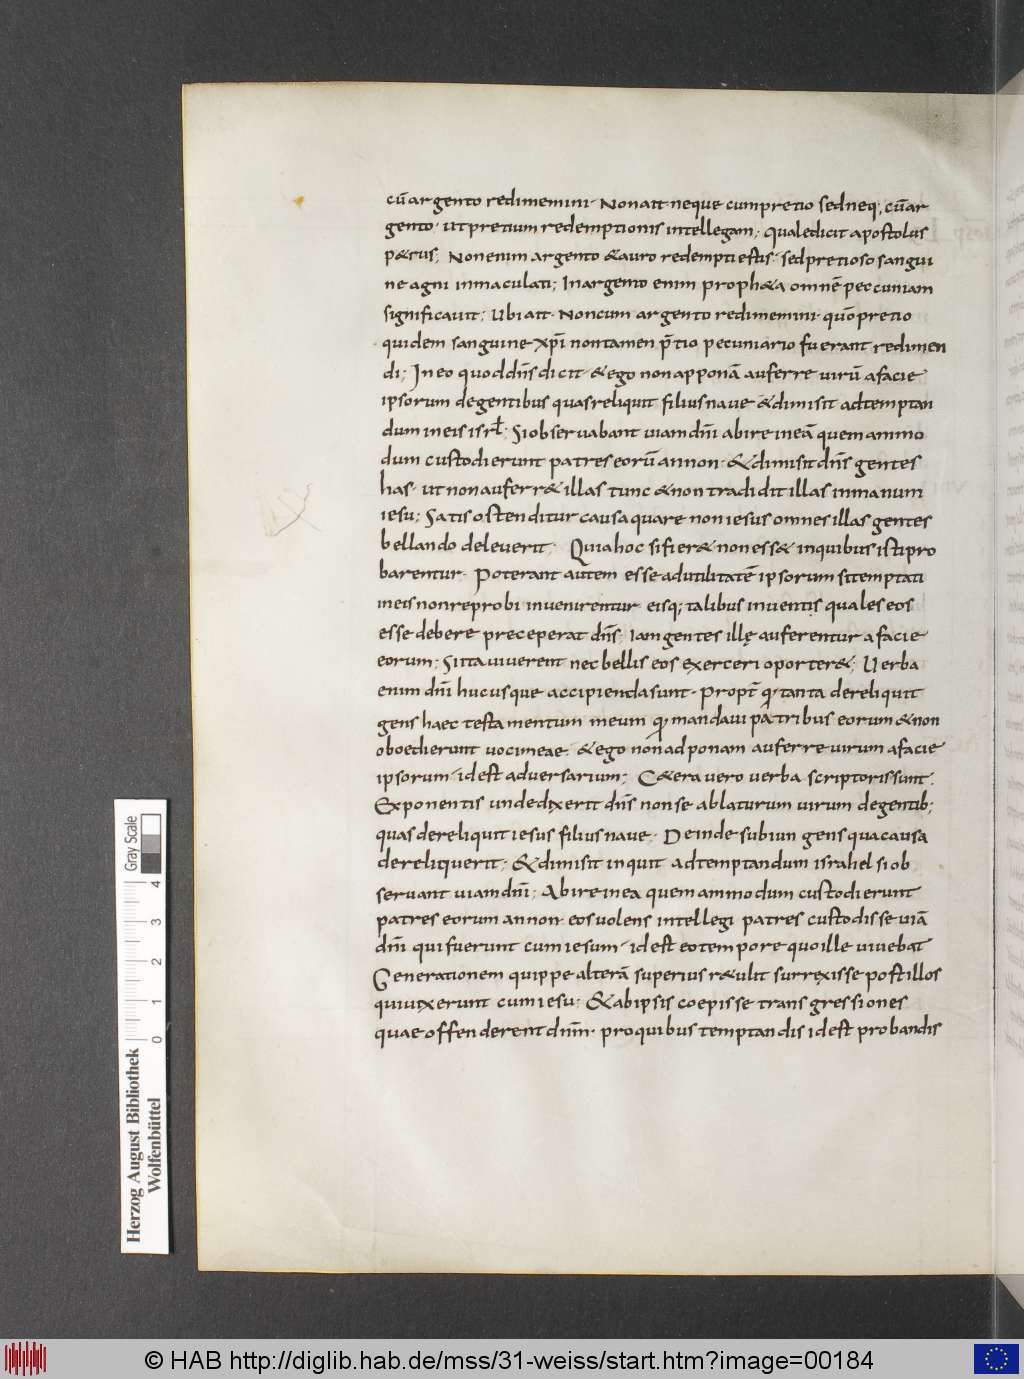 cū argento redimemini· Non ait neque cum pretio sed neq; cū ar
gento· ut pretium redemptionis intellegam; quale dicit apostolus
p&rus; Non enim argento & auro redempti estis· sed pretioso sangui
ne agni inmaculati; In argento enim proph&a omnē peccuniam
significavit; Ubi ait· Non cum argento redimemini· quō pretio
quidem sanguine xp̄i non tamen p̄tio pecuniario fuerant redimen
di; In eo quod dn̄s dicit· & ego non apponā auferre virū a facie
ipsorum de gentibus quas reliquit filius nave & dimisit ad temptan
dum in eis isrł; Si observabant viam dn̄i abire in eā quem ammo
dum custodierunt patres eorū an non· & dimisit dn̄s gentes
has· ut non auferr& illas tunc & non tradidit illas in manum
iesu; Satis ostenditur causa quare non iesus omnes illas gentes
bellando deleverit· Quia hoc si fier& non ess& in quibus isti pro
barentur· Poterant autem esse ad utilitatē ipsorum si temptati
in eis non reprobi invenirentur· eisq; talibus inventis quales eos
esse debere preceperat dn̄s; iam gentes illę auferentur a facie
eorum; Si ita viverent nec bellis eos exerceri oporter&; Verba
enim dn̄i hucusque accipienda sunt· propt̄ q· tanta dereliquit
gens haec testamentum meum q· mandavi patribus eorum & non
oboedierunt voci meae· & ego non adponam auferre virum a facie
ipsorum· id est adversarium; C&era vero verba scriptoris sunt·
Exponentis unde dixerit dn̄s non se ablaturum virum de gentib;
quas dereliquit iesus filius nave· Deinde subiungens qua causa
dereliquerit· & dimisit inquit ad temptandum israhel si ob
servant viam dn̄i· Abire in ea quem ammodum custodierunt
patres eorum an non· eos volens intellegi patres custodisse viā
dn̄i qui fuerunt cum iesum· id est eo tempore quo ille vivebat
Generationem quippe alterā superius r&ulit surrexisse post illos
qui vixerunt cum iesu· & ab ipsis coepisse transgressiones
quae offenderent dn̄m· pro quibus temptandis id est probandis
Gray Scale
0 1 2 3 4
Herzog August Bibliothek
Wolfenbüttel
© HAB http://diglib.hab.de/mss/31-weiss/start.htm?image=00184